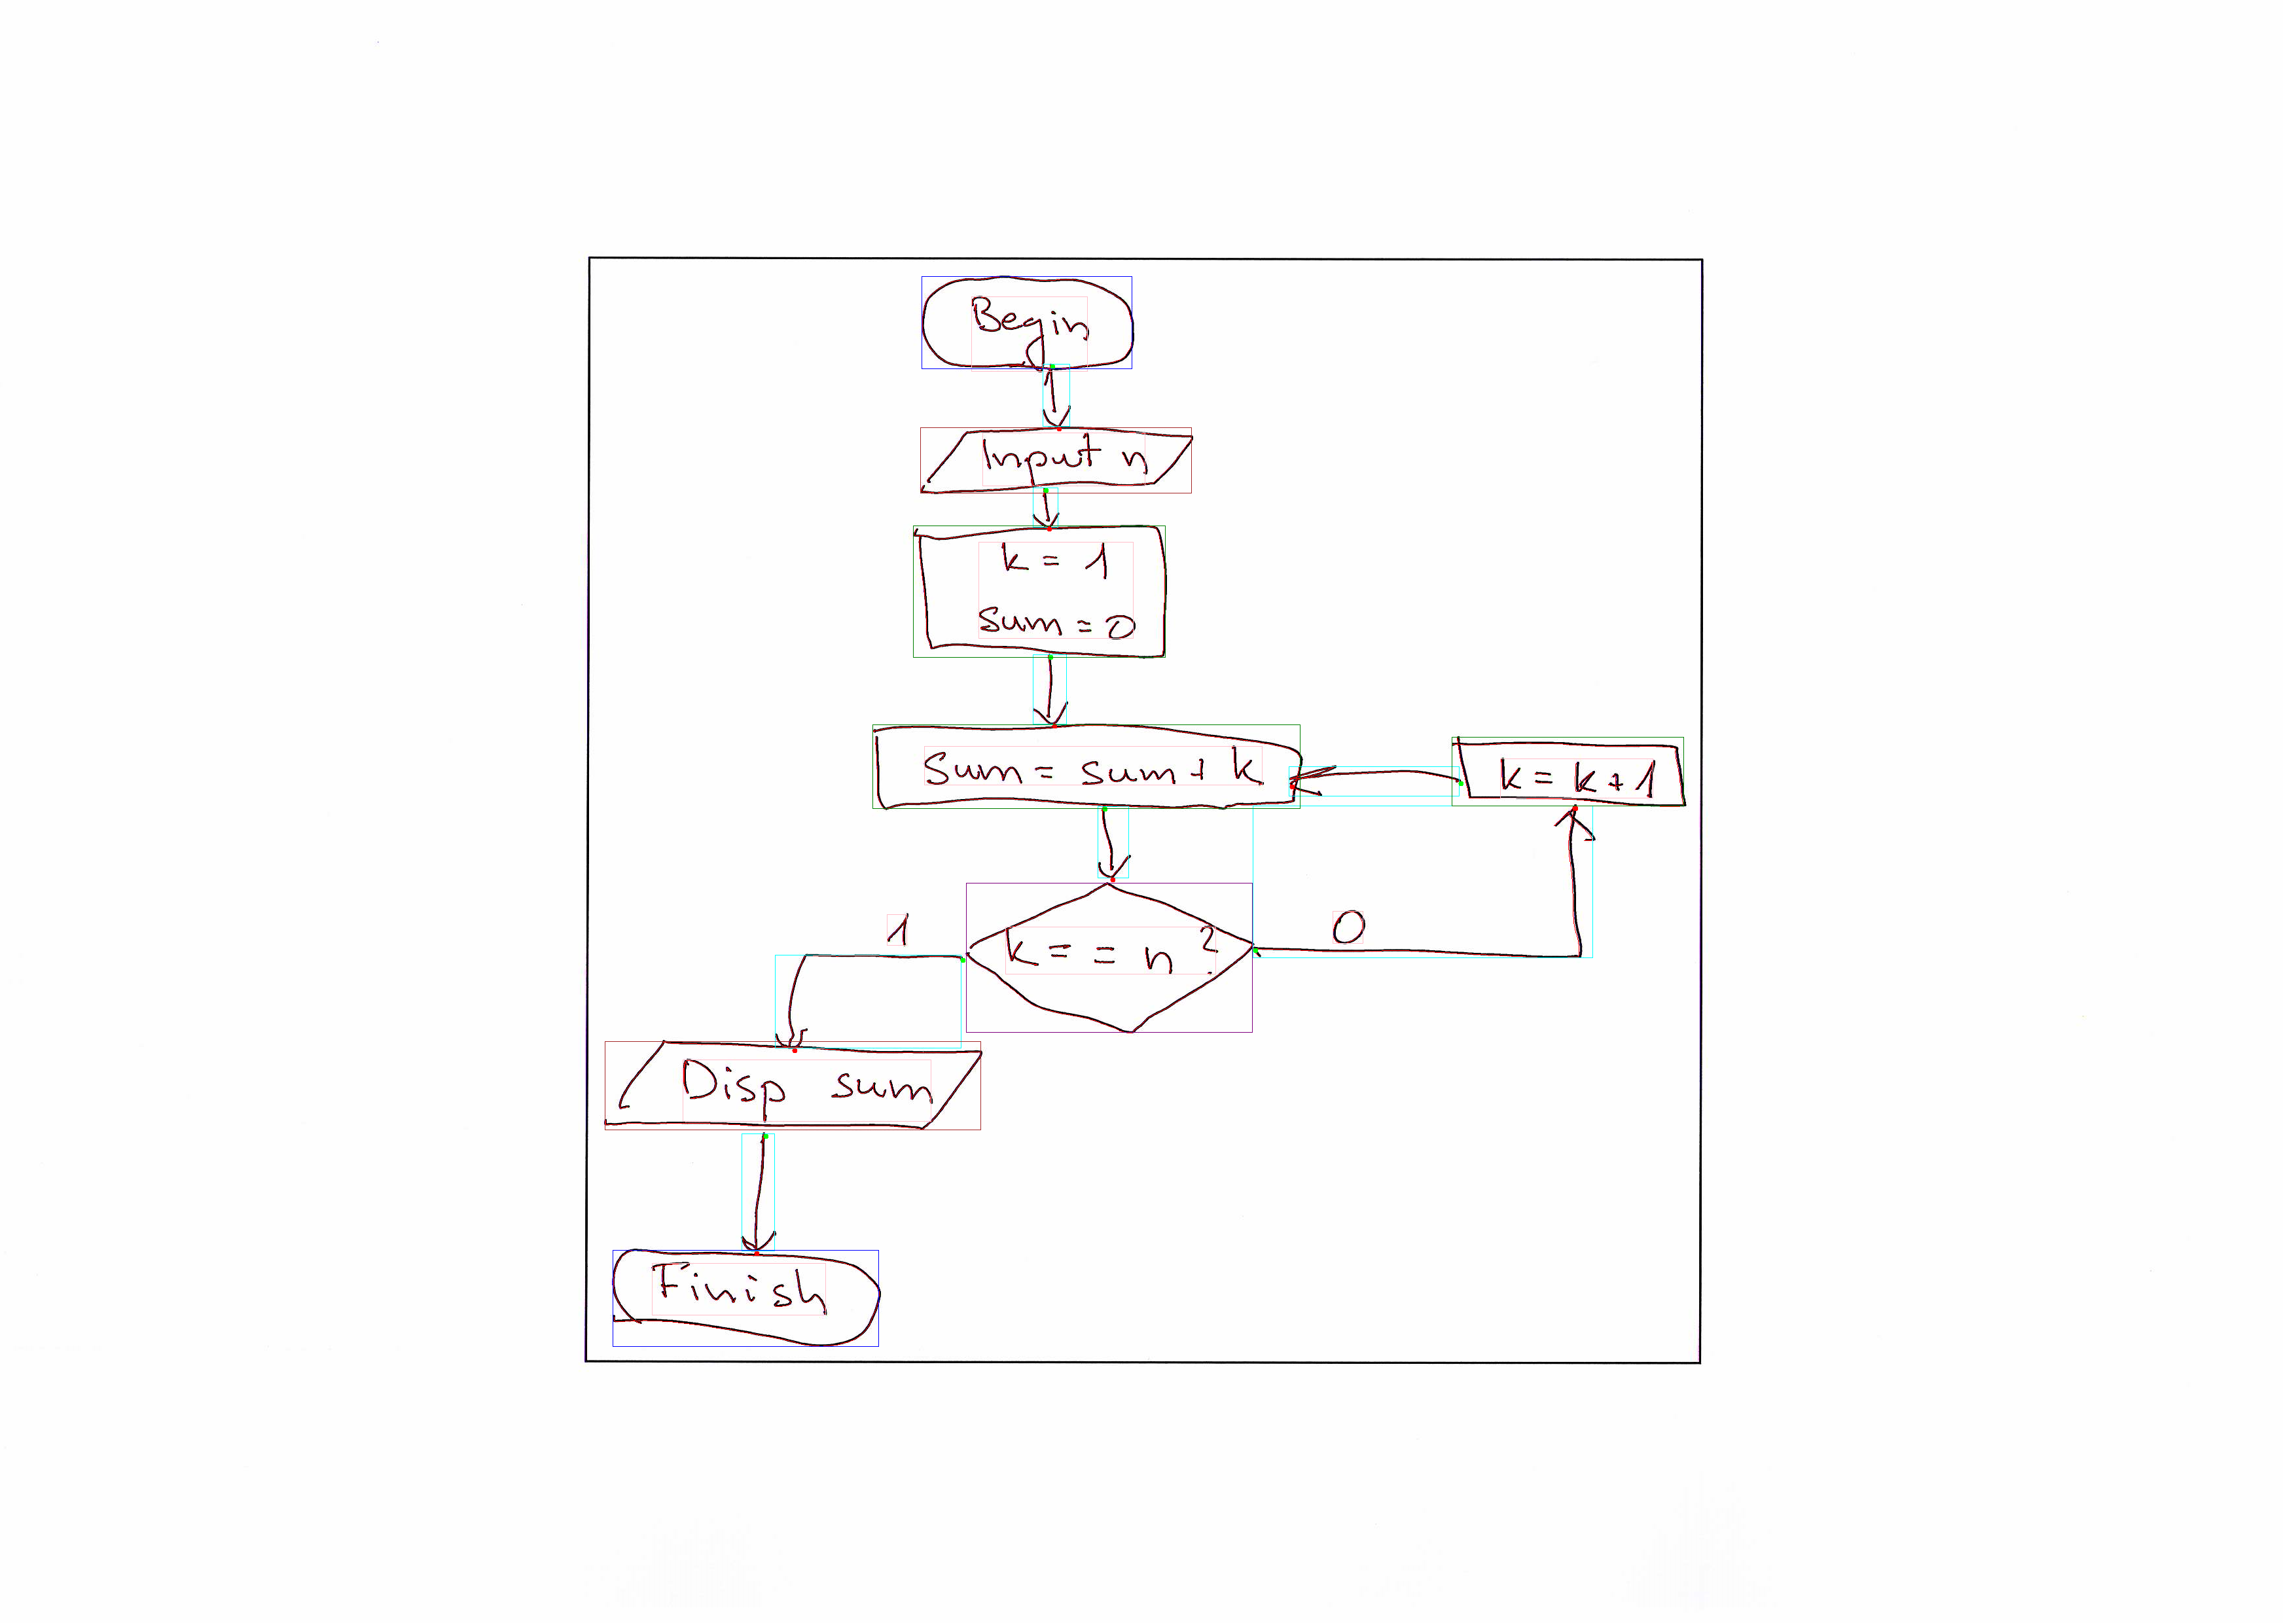 Begin
Input n
k = 1
sum = 0
Sum = sum + k
k = k + 1
1
0
k = = n ?
Disp sum
Finish